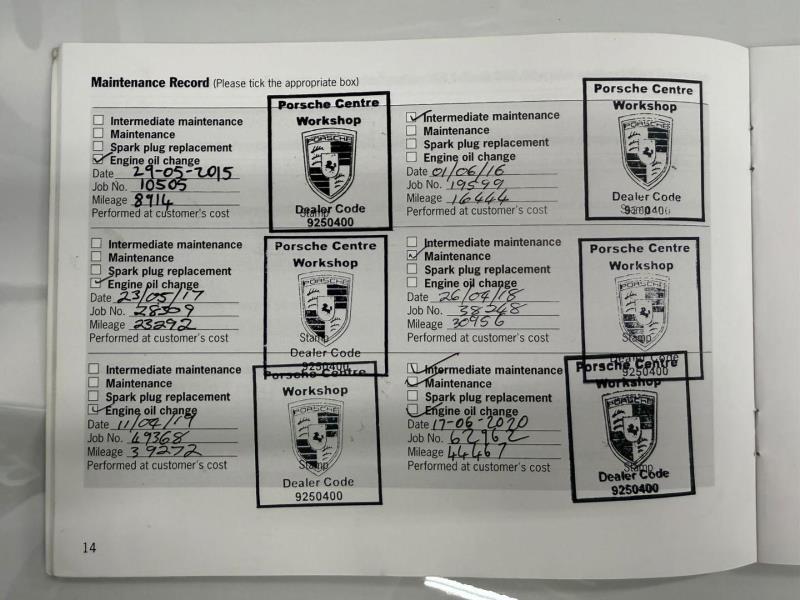 Maintenance Record (Please tick the appropriate box)
Intermediate maintenance
Maintenance
Spark plug replacement
Engine oil change
Date 29-05-2015
Job No. 10505
Mileage 8914
Performed at customer's cost
Stamp
Porsche Centre
Workshop
PORSCHE
Dealer Code
9250400
Intermediate maintenance
Maintenance
Spark plug replacement
Engine oil change
Date 01/06/16
Job No. 19599
Mileage 16444
Performed at customer's cost
Stamp
Porsche Centre
Workshop
PORSCHE
Dealer Code
9250400
Intermediate maintenance
Maintenance
Spark plug replacement
Engine oil change
Date 23/05/17
Job No. 28309
Mileage 23292
Performed at customer's cost
Stamp
Porsche Centre
Workshop
PORSCHE
Dealer Code
9250400
Intermediate maintenance
Maintenance
Spark plug replacement
Engine oil change
Date 26/04/18
Job No. 38348
Mileage 30956
Performed at customer's cost
Stamp
Porsche Centre
Workshop
PORSCHE
Dealer Code
9250400
Intermediate maintenance
Maintenance
Spark plug replacement
Engine oil change
Date 11/04/19
Job No. 49368
Mileage 39272
Performed at customer's cost
Stamp
Porsche Centre
Workshop
PORSCHE
Dealer Code
9250400
Intermediate maintenance
Maintenance
Spark plug replacement
Engine oil change
Date 17-06-2020
Job No. 62962
Mileage 44467
Performed at customer's cost
Stamp
Porsche Centre
Workshop
PORSCHE
Dealer Code
9250400
14